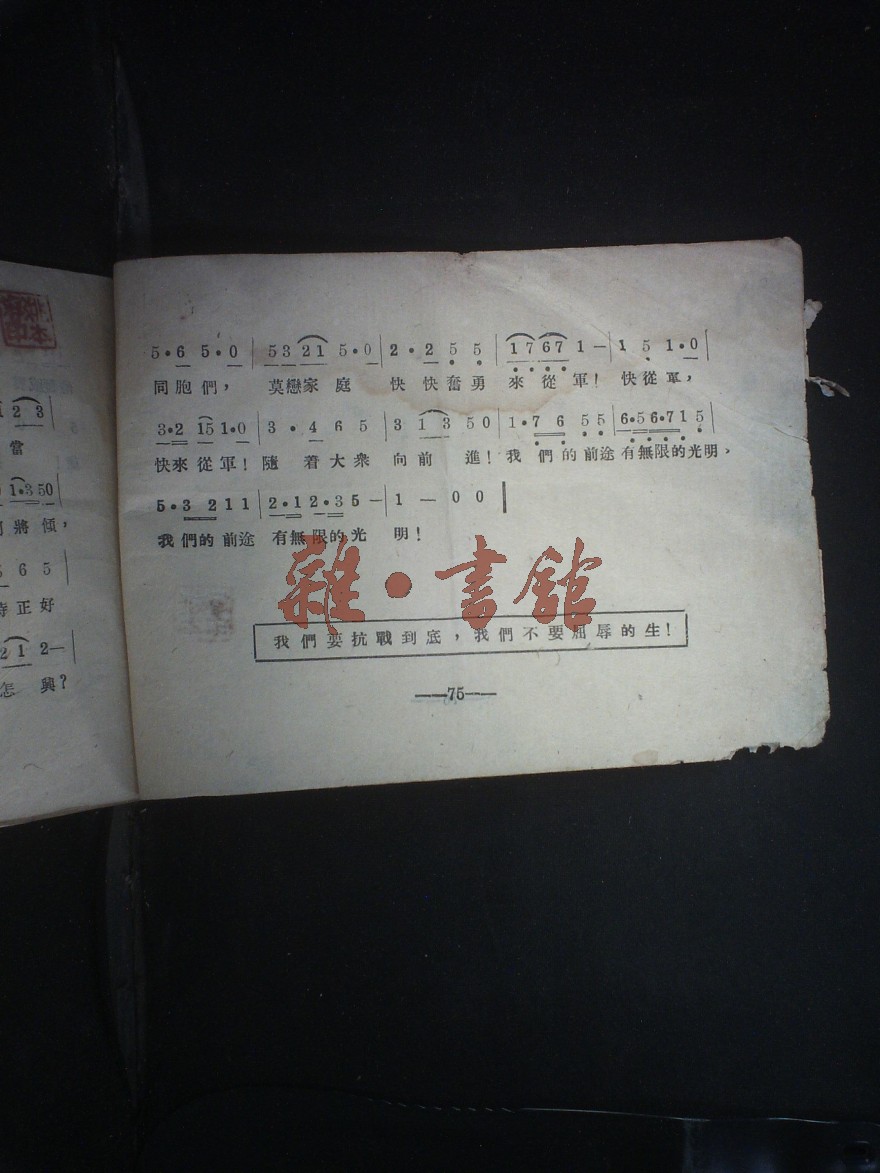 5·6 5·0 | 53 21 5·0 | 2·2 5 5 | 1767 1— | 1 5 1·0 |
同胞們， 莫戀家庭 快快奮勇 來從軍！ 快從軍，
3·2 15 1·0 | 3·4 6 5 | 3 13 50 | 1·7 6 5 5 | 6·56·71 5 |
快來從軍！ 隨着大衆 向前進！ 我們的前途有無限的光明，
5·3 2 1 1 | 2·1 2·3 5— | 1—0 0 ‖
我們的前途 有無限的光 明！
雜·書館
我們要抗戰到底，我們不要屈辱的生！
——75——
2 3 |
當
0 1·3 50
將傾，
6 5 |
正好
2 1 2— |
怎興？